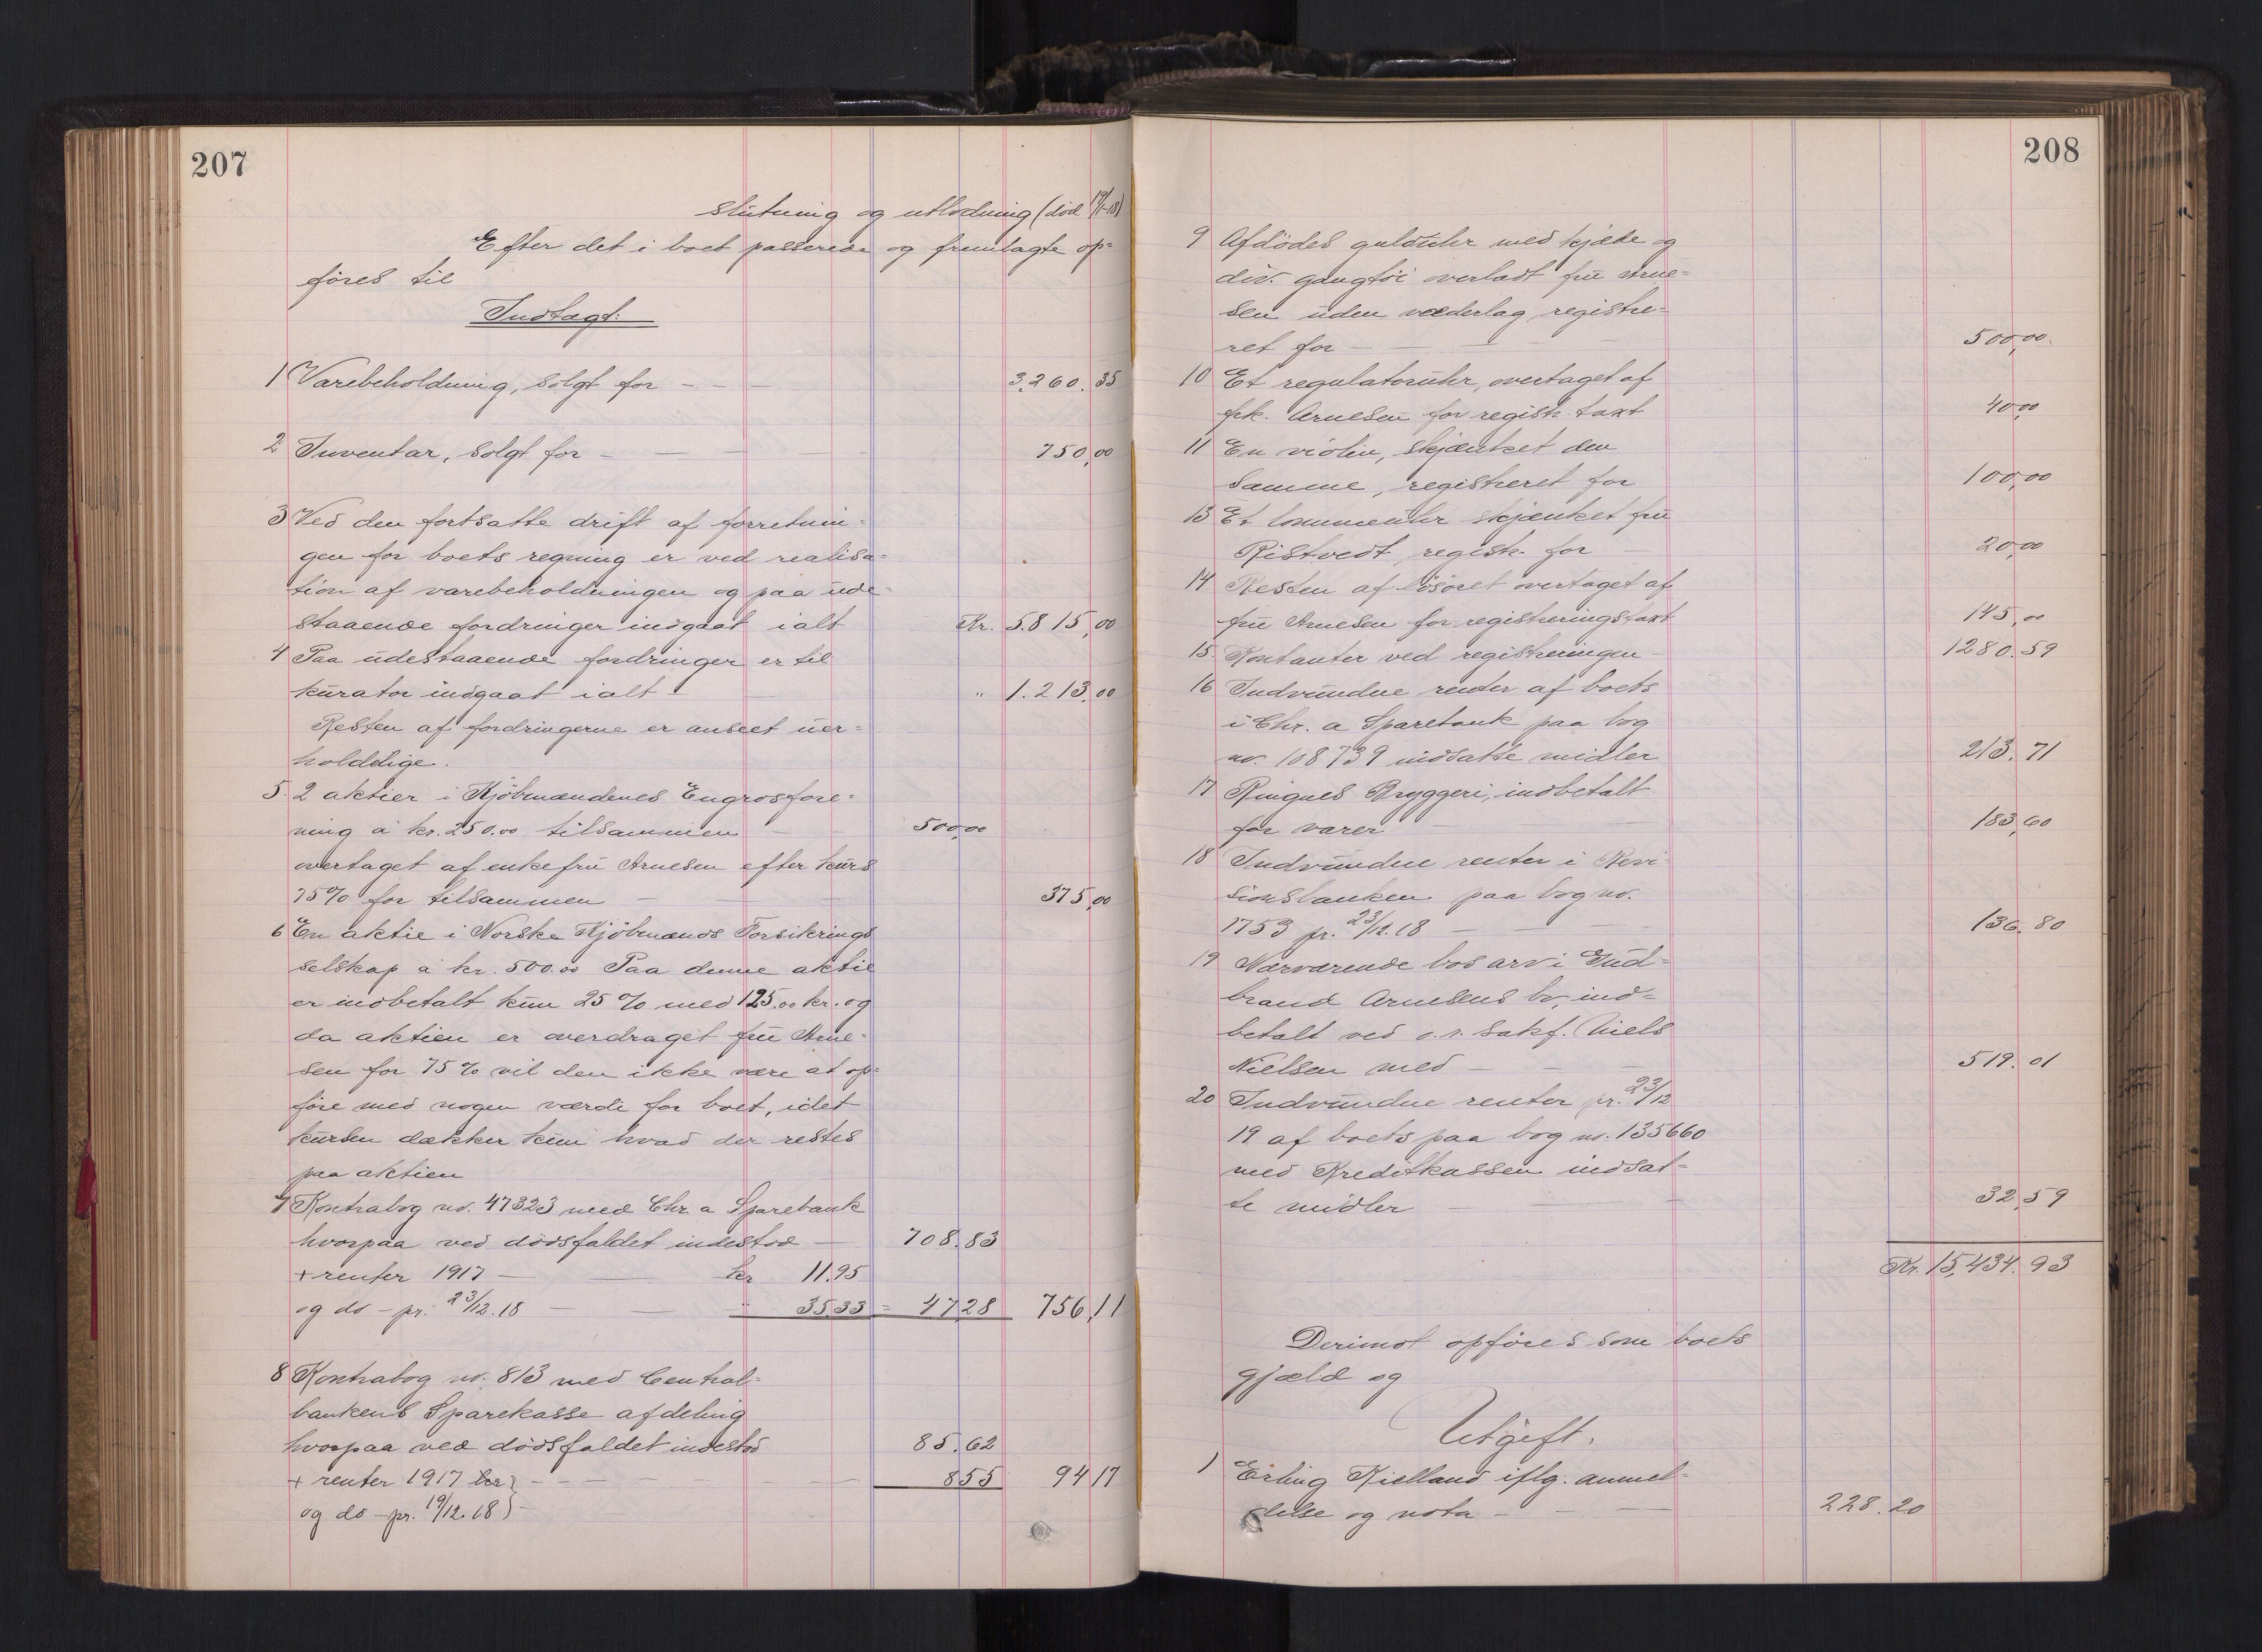 207
slutning og utlodning (död 19/1-18)
Efter det i boet passerede og fremlagte op=
föres til
Indtægt:
1 Varebeholdning, solgt for - - - 3,260.35
2 Inventar, solgt for - - - 750,00
3 Ved den fortsatte drift af forretnin=
gen for boets regning er ved realisa=
tion af varebeholdningen og paa ude=
staaende fordringer indgaat ialt Kr. 5.815,00
4 Paa udestaaende fordringer er til
kurator indgaat ialt - " 1.213,00
Resten af fordringerne er anseet uer=
holdelige.
5. 2 aktier i Kjöbmændenes Engrosfore=
ning á kr. 250.00 tilsammen - 500,00
overtaget af enkefru Arnesen efter kurs
75% for tilsammen - - - 375,00
6 En aktie i Norske Kjöbmænds Forsikrings
selskap á kr. 500.00 Paa denne aktie
er indbetalt kun 25% med 125.00 kr. og
da aktien er overdraget fru Arne=
sen for 75% vil den ikke være at op=
före med nogen værdi for boet, idet
kursen dækker kun hvad der restes
paa aktien
7 Kontrabog no. 47323 med Chr.a Sparebank
hvorpaa ved dödsfaldet indestod - 708.83
+ renter 1917 - - kr 11.95
og do - pr. 23/12.18 - - " 35.33 = 47.28 756,11
8 Kontrabog no. 813 med Central=
bankens Sparekasse afdeling
hvorpaa ved dödsfaldet indestod 85.62
+ renter 1917 kr } - - - - 855 94 17
og do - pr. 19/12.18 } -
208
9 Afdödes guldúhr med kjæde og
div. gangtöi overladt fru Arne=
sen uden vederlag, registre=
ret for - - - - 500,00
10 Et regulatoruhr, overtaget af
frk. Arnesen for registr. taxt 40,00
11 En violin, skjænket den
samme, registreret for 100,00
13 Et lommeuhr skjænket fru
Ristvedt, registr. for - 20,00
14 Resten af lösöret overtaget af
fru Arnesen for registreringstaxt 145,00
15. Kontanter ved registreringen - 1280.59
16 Indvundne renter af boets
i Chr.a Sparebank paa bog
no. 108739 indsatte midler 213.71
17 Ringnes Bryggeri, indbetalt
for varer - - - 183,60
18 Indvundne renter i Revi=
sionsbanken paa bog no.
1753 pr. 23/12.18 - - - 136.80
19 Nærværende bos arv i Gud=
brand Arnesens bo, ind=
betalt ved o.r. sakf. Niels
Nielsen med - - - 519.01
20 Indvundne renter pr. 23/12
19 af boets paa bog no. 135660
med Kreditkassen indsat=
te midler - - - 32,59
Kr. 15,434.93
Derimot opföres som boets
gjæld og
Utgift.
1 Erling Kielland iflg. anmel=
delse og nota - - - 228.20